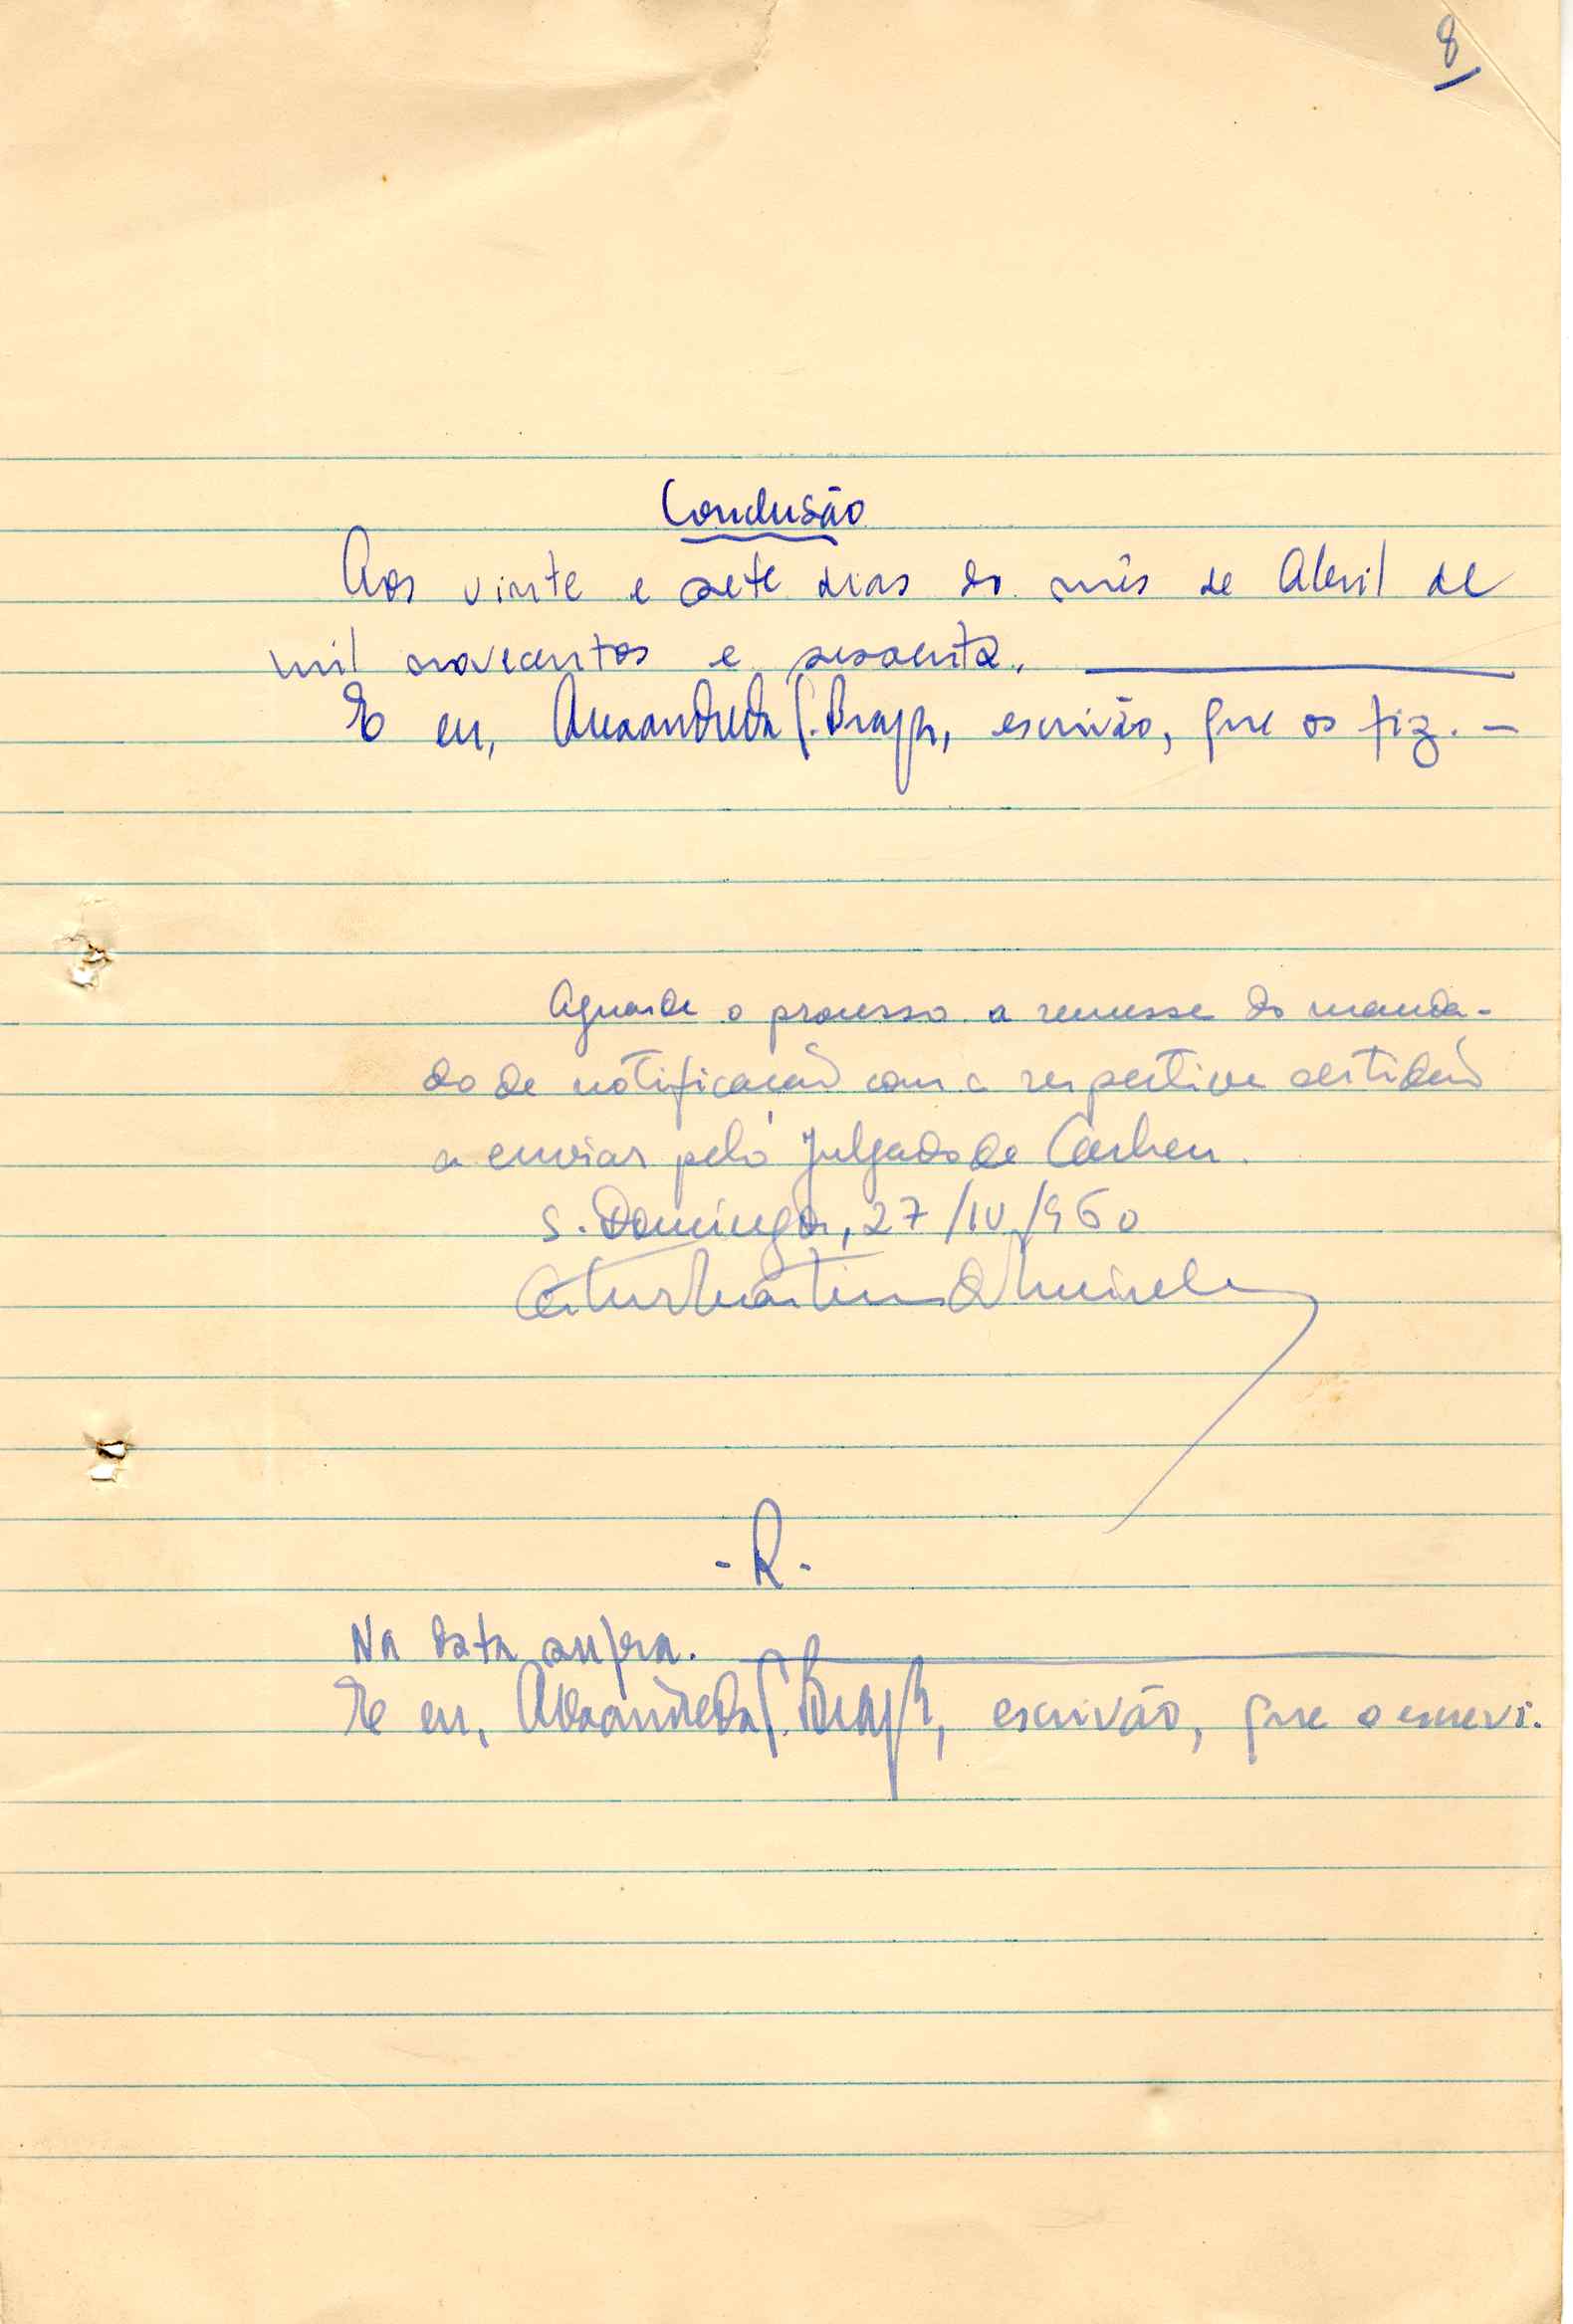 8
Conclusão
Aos vinte e sete dias do mês de Abril de
mil novecentos e sessenta.
E eu, Alexandre da S. Braga, escrivão, que os fiz. —
Aguarde o processo a remessa do manda-
do de notificação com a respectiva certidão
a enviar pelo Julgado de Cacheu.
S. Domingos, 27/IV/960
Artur Martins de Meireles
- R -
Na data supra.
E eu, Alexandre da S. Braga, escrivão, que o escrevi.